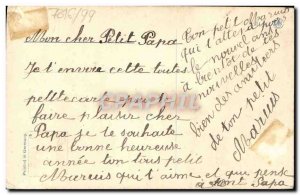 7616/99
Mon cher Petit Papa
Je t'envoie cette toutes
petite carte pour te
faire plaisir cher
Papa je te souhaite
une bonne heureuse
année ton tous petit
Maruis qui t'aime et que pense
a sont Papa
Ton petit Maruis
qui t'aites a pour
le nouvel an
a bientôt de tes
nouvelles
bien des amitiers
de ton petit
Maruis
Printed in Germany